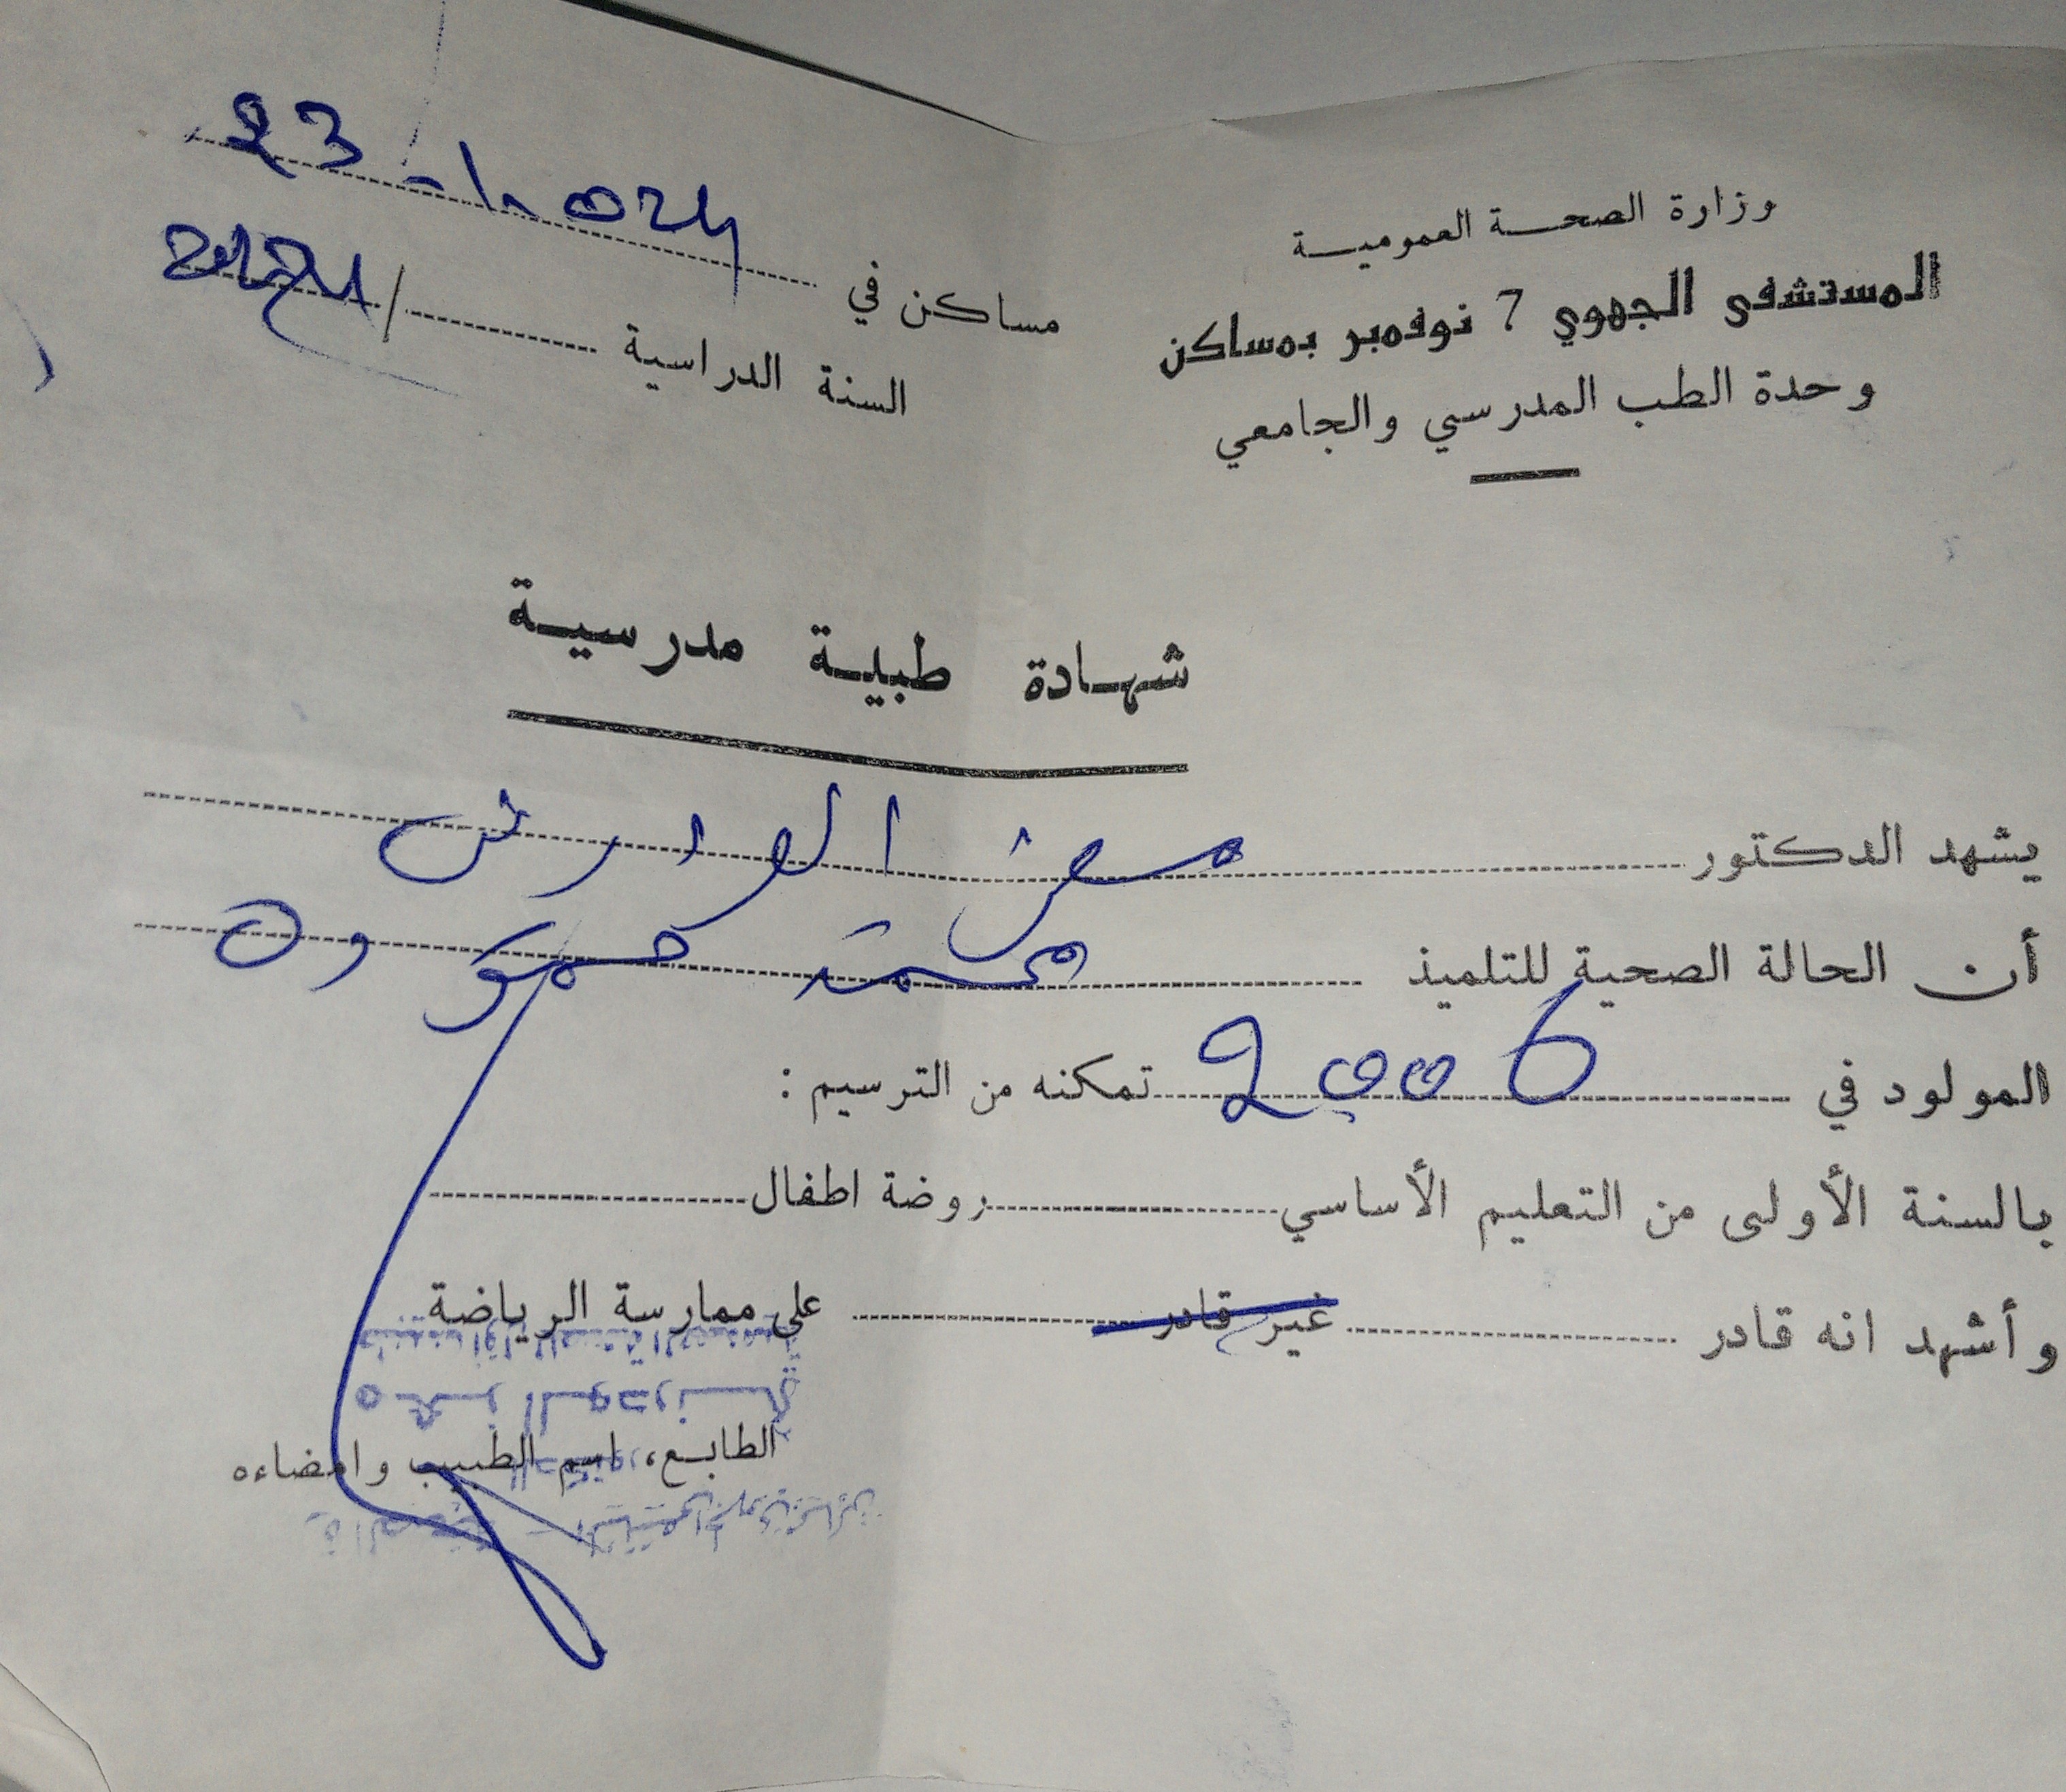 وزارة الصحة العمومية
المستشفى الجهوي 7 نوفمبر بمساكن
وحدة الطب المدرسي والجامعي
مساكن في
السنة الدراسية /
شهادة طبية مدرسية
يشهد الدكتور
أن الحالة الصحية للتلميذ محمد حمودة
المولود في 2006 تمكنه من الترسيم :
بالسنة الأولى من التعليم الأساسي روضة اطفال
وأشهد انه قادر غير قادر على ممارسة الرياضة
الطابع، اسم الطبيب وامضاءه